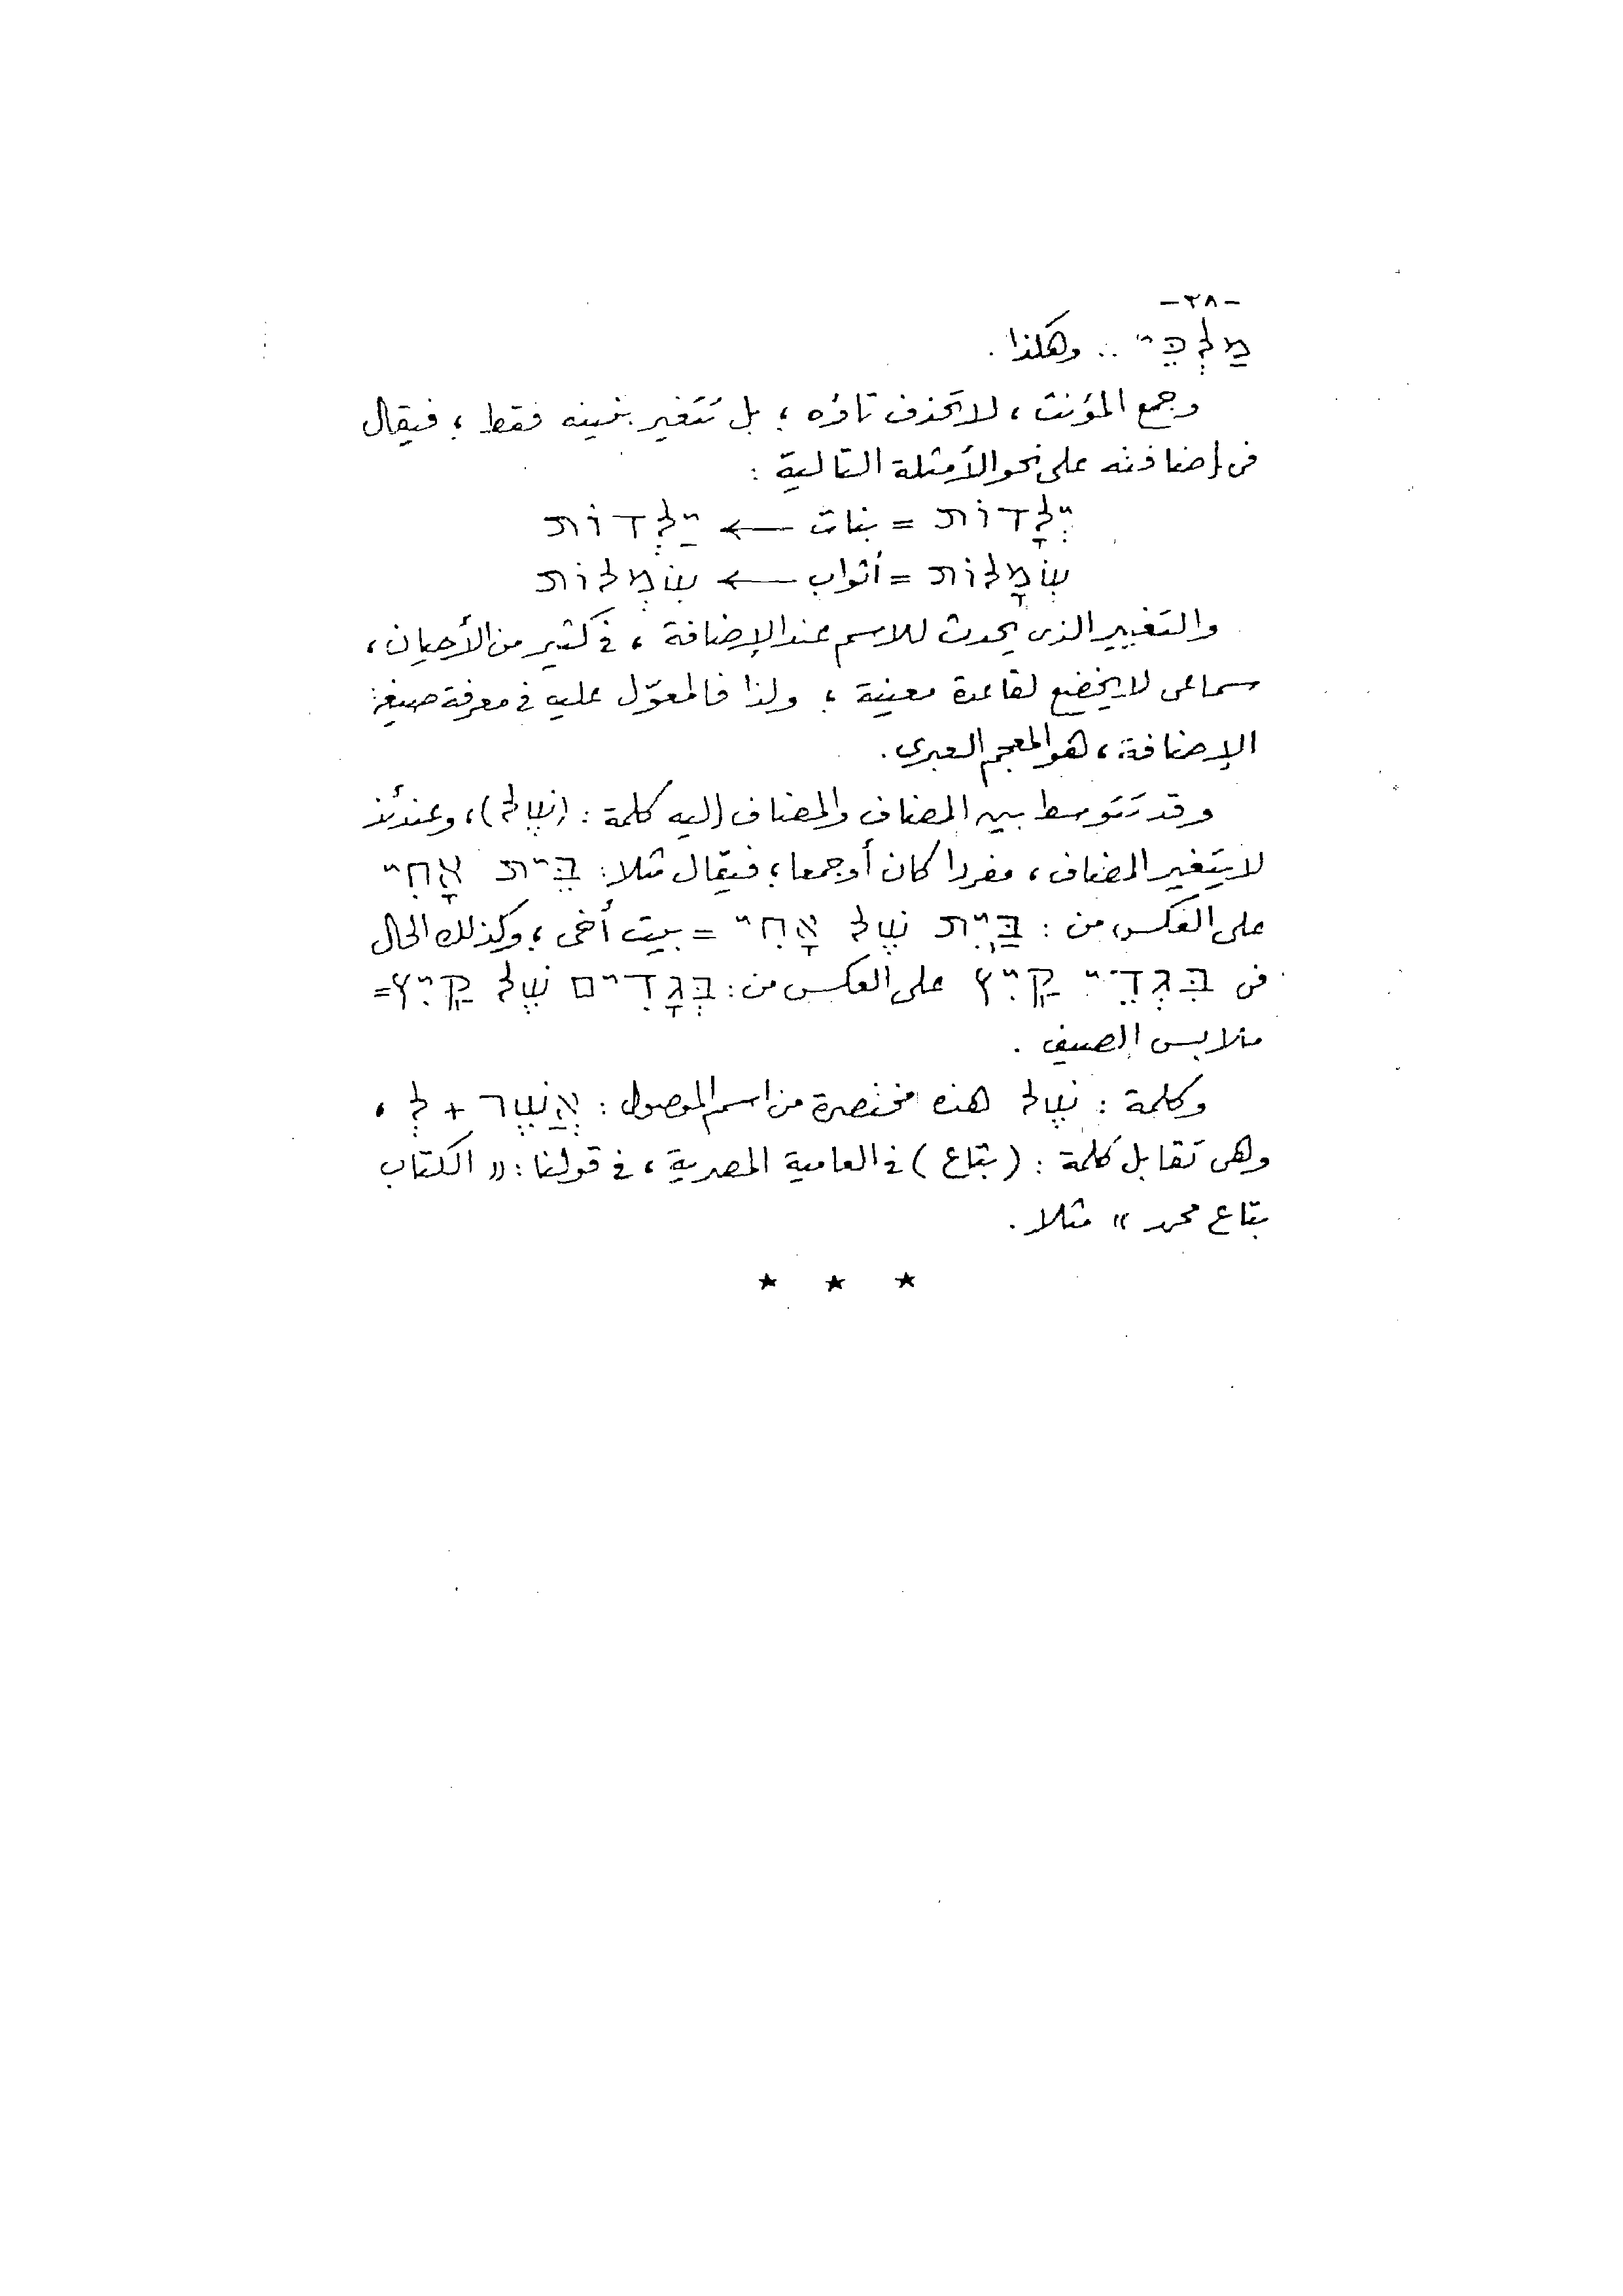 -٢٨-
מַלְכֵּי .. وهكذا .
وجمع المؤنث ، لا تحذف تاؤه ؛ بل تتغير بنيته فقط ؛ فيقال
فى إضافته على نحو الأمثلة التالية :
יְלָדוֹת = بنات ← יַלְדוֹת
שְׂמָלוֹת = أثواب ← שִׂמְלוֹת
والتغيير الذى يحدث للاسم عند الإضافة ، فى كثير من الأحيان ،
سماعى لا يخضع لقاعدة معينة ؛ ولذا فالمعوّل عليه فى معرفة صيغة
الإضافة ، هو المعجم العبرى .
وقد تتوسط بين المضاف والمضاف إليه كلمة : (שֶׁל) ، وعندئذ
لا يتغير المضاف ، مفردا كان أو جمعا ؛ فيقال مثلا : בֵּית אָחִי
على العكس من : בַּיִת שֶׁל אָחִי = بيت أخى ؛ وكذلك الحال
فى בִּגְדֵי קַיִץ على العكس من : בְּגָדִים שֶׁל קַיִץ =
ملابس الصيف .
وكلمة : שֶׁל هذه مختصرة من اسم الموصول : אֲשֶׁר + לְ ،
وهى تقابل كلمة : (بتاع) فى العامية المصرية ، فى قولنا : « الكتاب
بتاع محمد » مثلا .
* * *